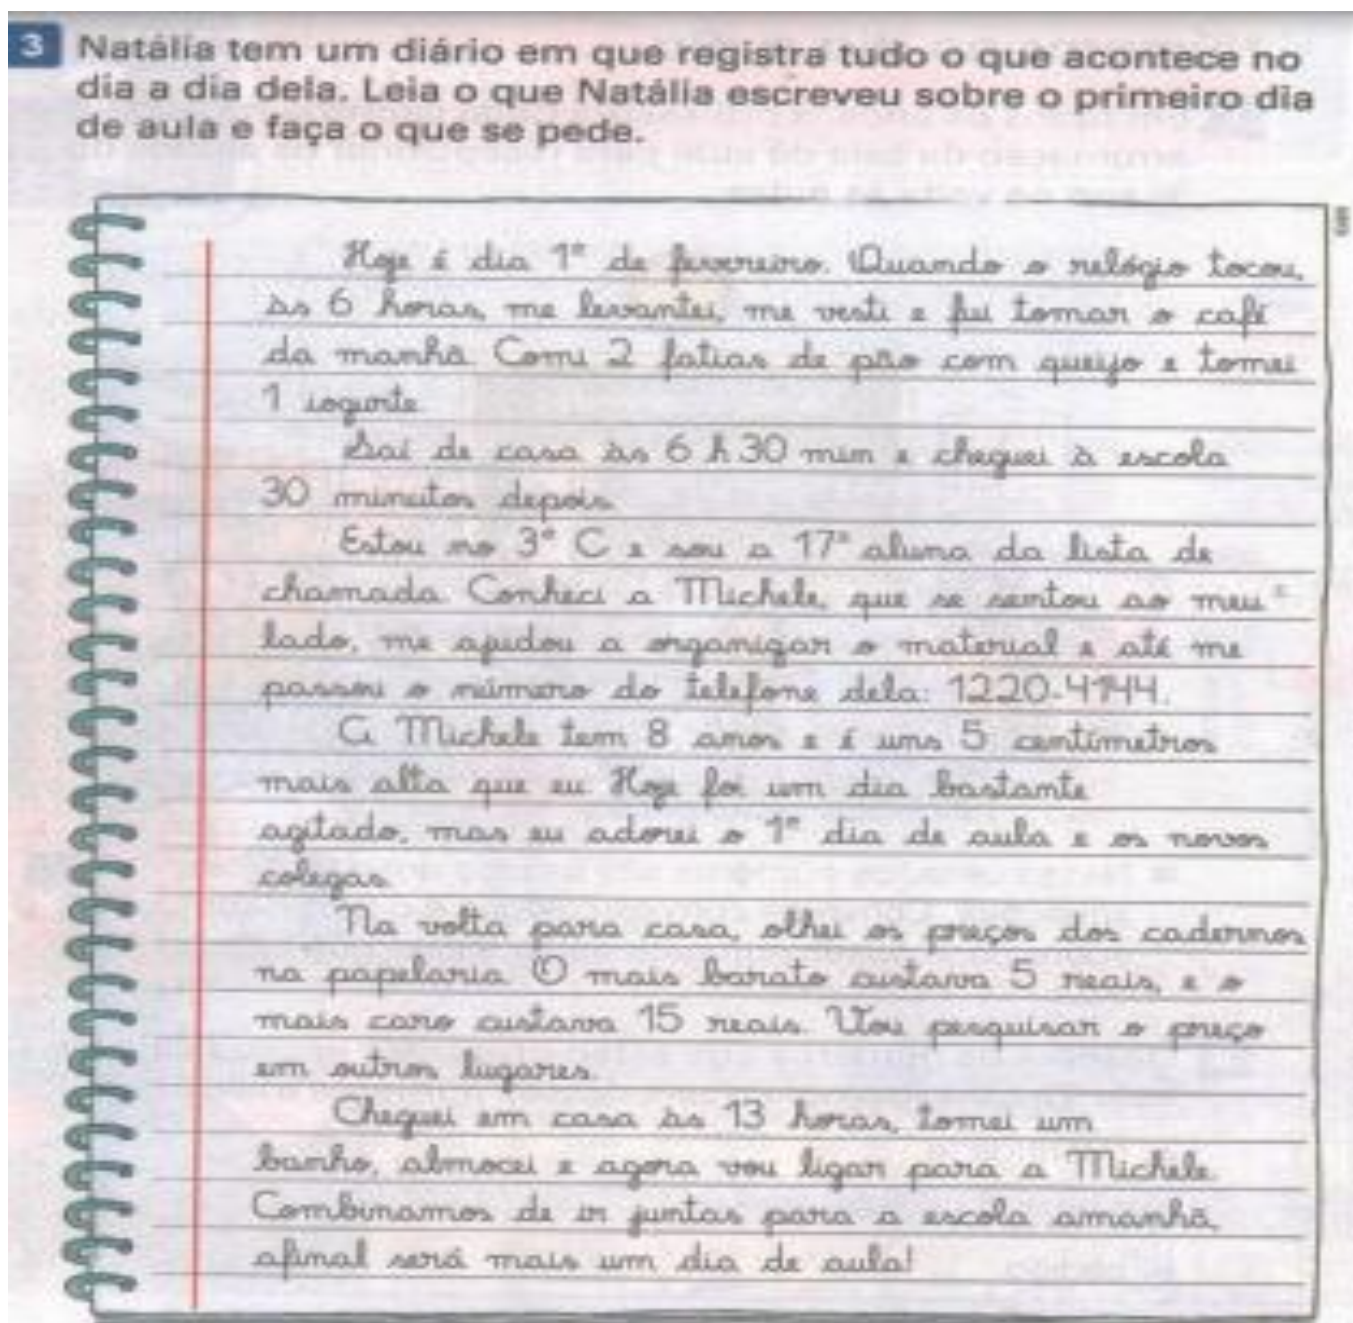 3 Natália tem um diário em que registra tudo o que acontece no
dia a dia dela. Leia o que Natália escreveu sobre o primeiro dia
de aula e faça o que se pede.
Hoje é dia 1º de fevereiro. Quando o relógio tocou,
às 6 horas, me levantei, me vesti e fui tomar o café
da manhã. Comi 2 fatias de pão com queijo e tomei
1 iogurte.
Saí de casa às 6 h 30 min e cheguei à escola
30 minutos depois.
Estou no 3º C e sou a 17ª aluna da lista de
chamada. Conheci a Michele, que se sentou ao meu
lado, me ajudou a organizar o material e até me
passou o número do telefone dela: 1220-4144.
A Michele tem 8 anos e é uns 5 centímetros
mais alta que eu. Hoje foi um dia bastante
agitado, mas eu adorei o 1º dia de aula e os novos
colegas.
Na volta para casa, olhei os preços dos cadernos
na papelaria. O mais barato custava 5 reais, e o
mais caro custava 15 reais. Vou pesquisar o preço
em outros lugares.
Cheguei em casa às 13 horas, tomei um
banho, almocei e agora vou ligar para a Michele.
Combinamos de ir juntas para a escola amanhã,
afinal será mais um dia de aula!